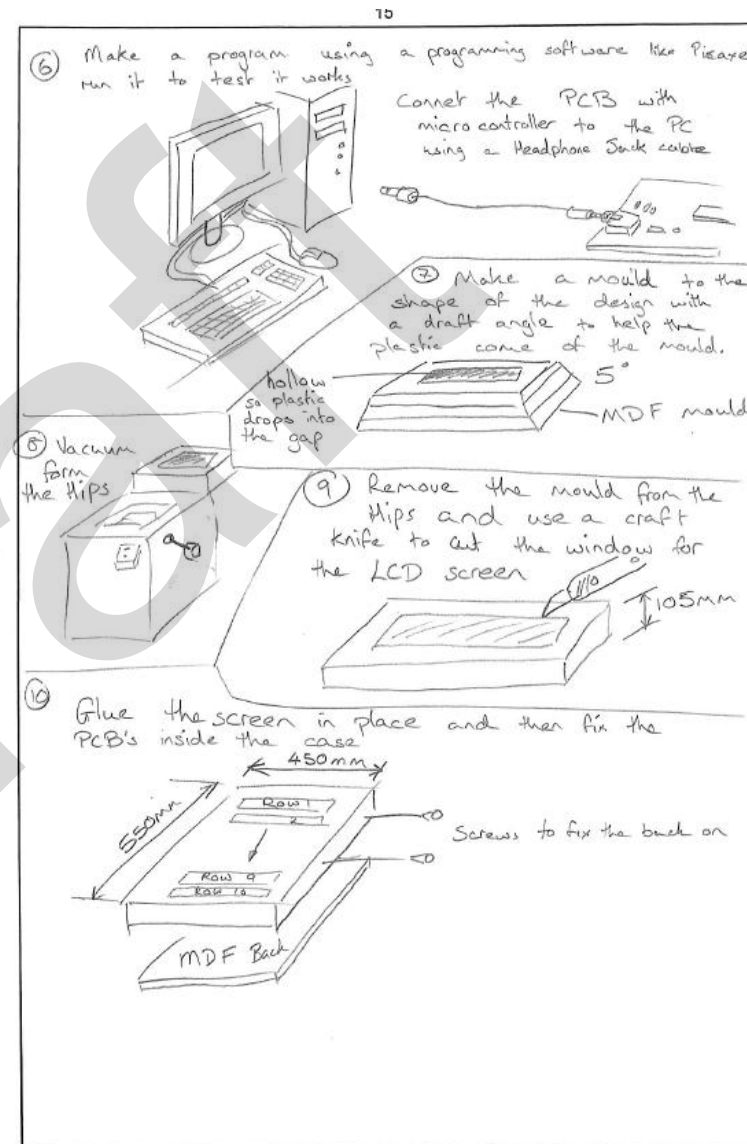 15
⑥ Make a program using a programming software like Picaxe
run it to test it works
Connet the PCB with
micro controller to the PC
using a Headphone Jack cable
⑦ Make a mould to the
shape of the design with
a draft angle to help the
plastic come of the mould.
hollow
so plastic
drops into
the gap
5°
MDF mould
⑧ Vacuum
form
the Hips
⑨ Remove the mould from the
Hips and use a craft
knife to cut the window for
the LCD screen
105mm
⑩ Glue the screen in place and then fix the
PCB's inside the case
450mm
550mm
Row 1
2
Row 9
Row 10
Screws to fix the back on
MDF Back